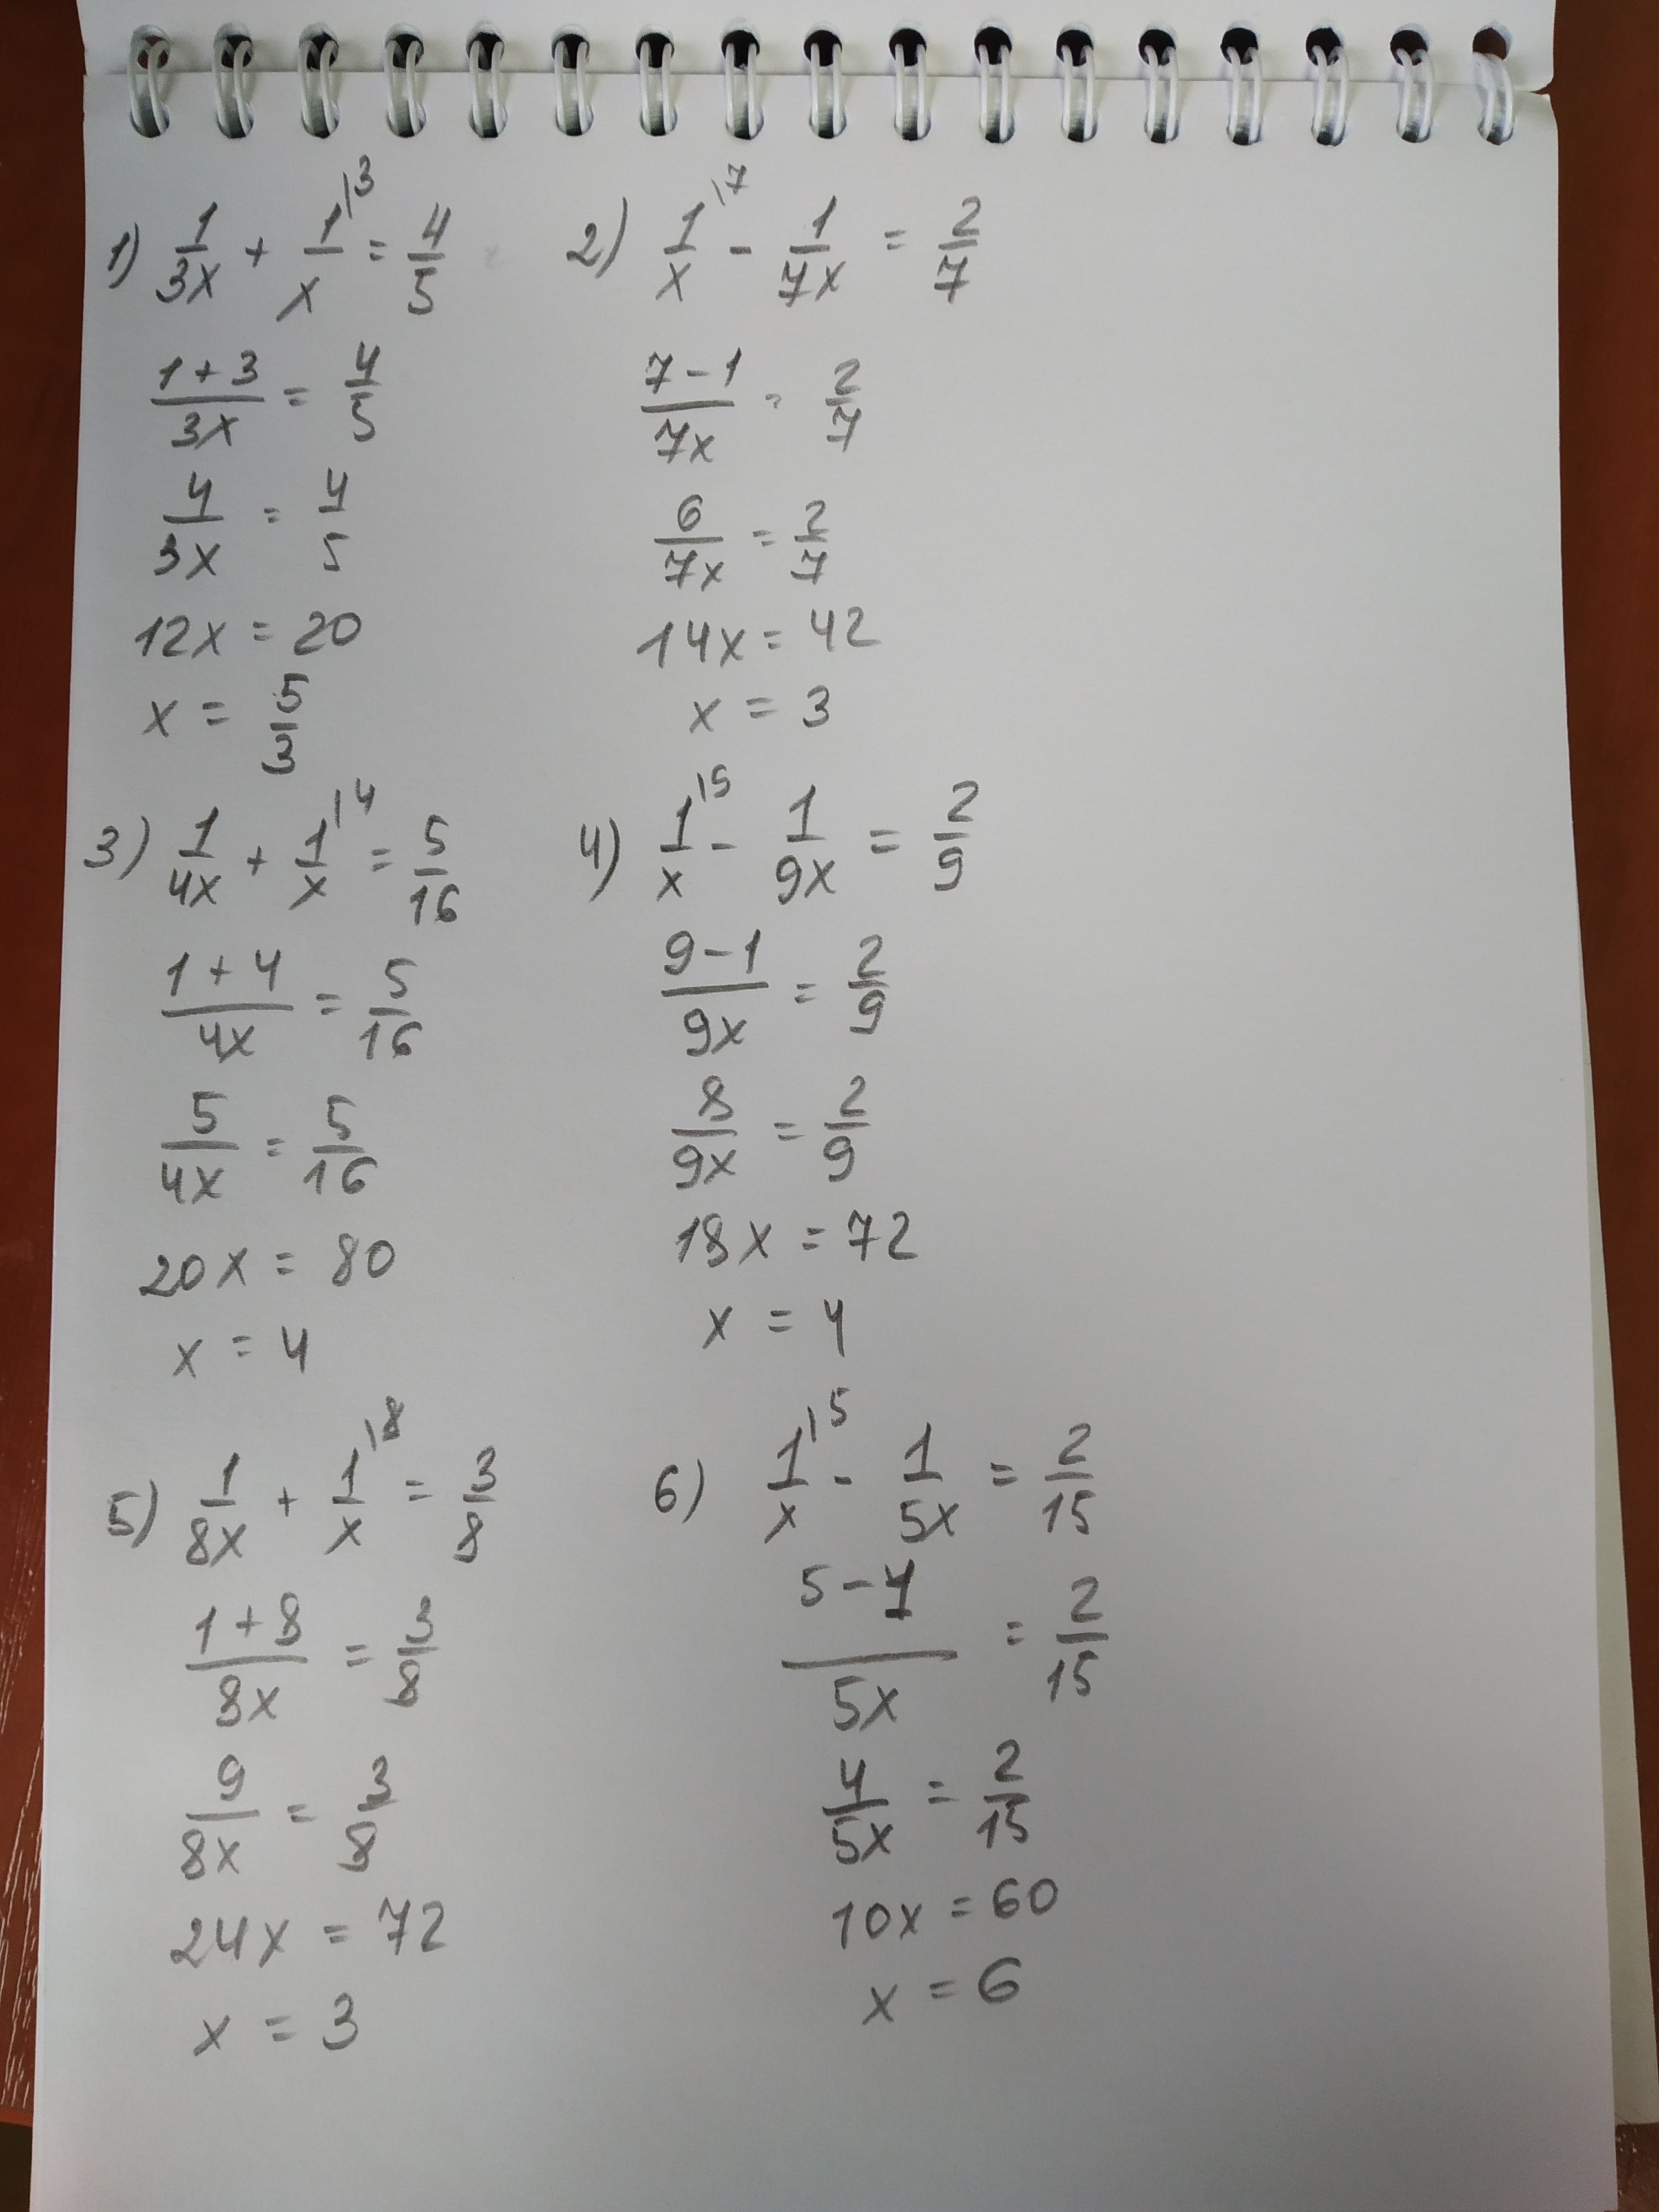 1) 1/3x + 1/x \3 = 4/5
(1+3)/3x = 4/5
4/3x = 4/5
12x = 20
x = 5/3
2) 1/x \7 - 1/7x = 2/7
(7-1)/7x = 2/7
6/7x = 2/7
14x = 42
x = 3
3) 1/4x + 1/x \4 = 5/16
(1+4)/4x = 5/16
5/4x = 5/16
20x = 80
x = 4
4) 1/x \9 - 1/9x = 2/9
(9-1)/9x = 2/9
8/9x = 2/9
18x = 72
x = 4
5) 1/8x + 1/x \8 = 3/8
(1+8)/8x = 3/8
9/8x = 3/8
24x = 72
x = 3
6) 1/x \5 - 1/5x = 2/15
(5-1)/5x = 2/15
4/5x = 2/15
10x = 60
x = 6